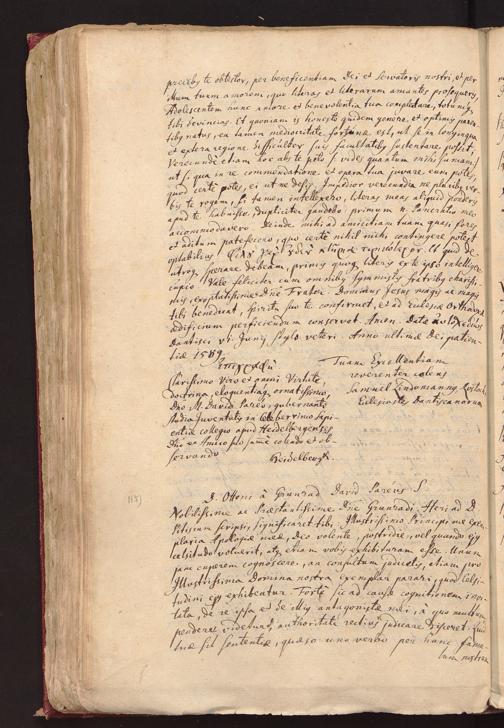 precibus te obtestor, per beneficentiam Dei et Servatoris nostri, et per
illum tuum amorem, quo literas et literarum amantes prosequeris,
Adolescentem hunc amore et benevolentia tua complectare, totumque
tibi devincias. Et quoniam is honesto quidem genere et optimis paren
tibus natus, ea tamen mediocritate fortunae est, ut se in longinqua
et extera regione difficulter suis facultatibus sustentare possit,
Verecunde etiam hoc abs te peto (: vides quantum mihi sumam:)
ut si qua in re commendatione et opera tua juvare eum potes,
quod certe potes, ei ut ne desis. Impedior verecundia ne pluribus ver-
bis te rogem, tamen intellexero, literas meas aliquid ponderis
apud te habuisse, dupliciter gaudebo primum
accommodavero. Deinde mihi ad amicitiam tuam quasi fores
et aditum patefecero, quo certe nihil mihi contingere potest
optabilius
utroque sperare debeam, primis quoque literis ex te ipso intelligere
cupio. Vale feliciter cum omnibus Symmystis fratribus charissi-
mis, exoptatissime Dne Frater. Dominus Jesus magis ac magis
tibi benedicat, spiritu suo te confirmet, et ad Ecclesiae
aedificium perficiendum conservet. Amen. Datae
Dantisci VI. Junij, stylo veteri Anno ultimae Dei patien-
tiae 1589.
Tuam Excellentiam
Clarissimo Viro et omni Virtute,
reverenter colens
doctrina, eloquentiaque ornatissimo,
Samuel Lindemannus
Dno M. David Pareo, gubernanti
Ecclesiastes Dantiscanorum
studia Juventutis in celeberrimo Sapi-
entiae collegio apud Heidelbergenses,
Dno et Amico suo colendo et ob-
servando
Heidelbergk.
D. Ottoni à Grunrad David Pareus S.
Nobilissime ac Praestantissime Dne Grunradi. Heri ad D.
Pitiscum scripsi, significaret tibi, Illustrissimo Principi me exem-
plaria Apologiae meae, Deo volente, postridie, vel quando ejus
celsitudo voluerit, atque etiam vobis exhibiturum esse. Unum
jam cuperem cognoscere, an consultum judicetis, etiam pro
Illustrissima Domina nostra exemplar parari, quod Celsi-
tudini ejus exhibeatur. Forte sic ad causae cognitionem invi-
tata, de re ipsa et de meis antagonistis mei, à quo multum
pendere videtur, authoritate rectius judicare disceret. Quid
tuae sit sententiae, quaeso uno verbo per hunc famu-
lum nostrum